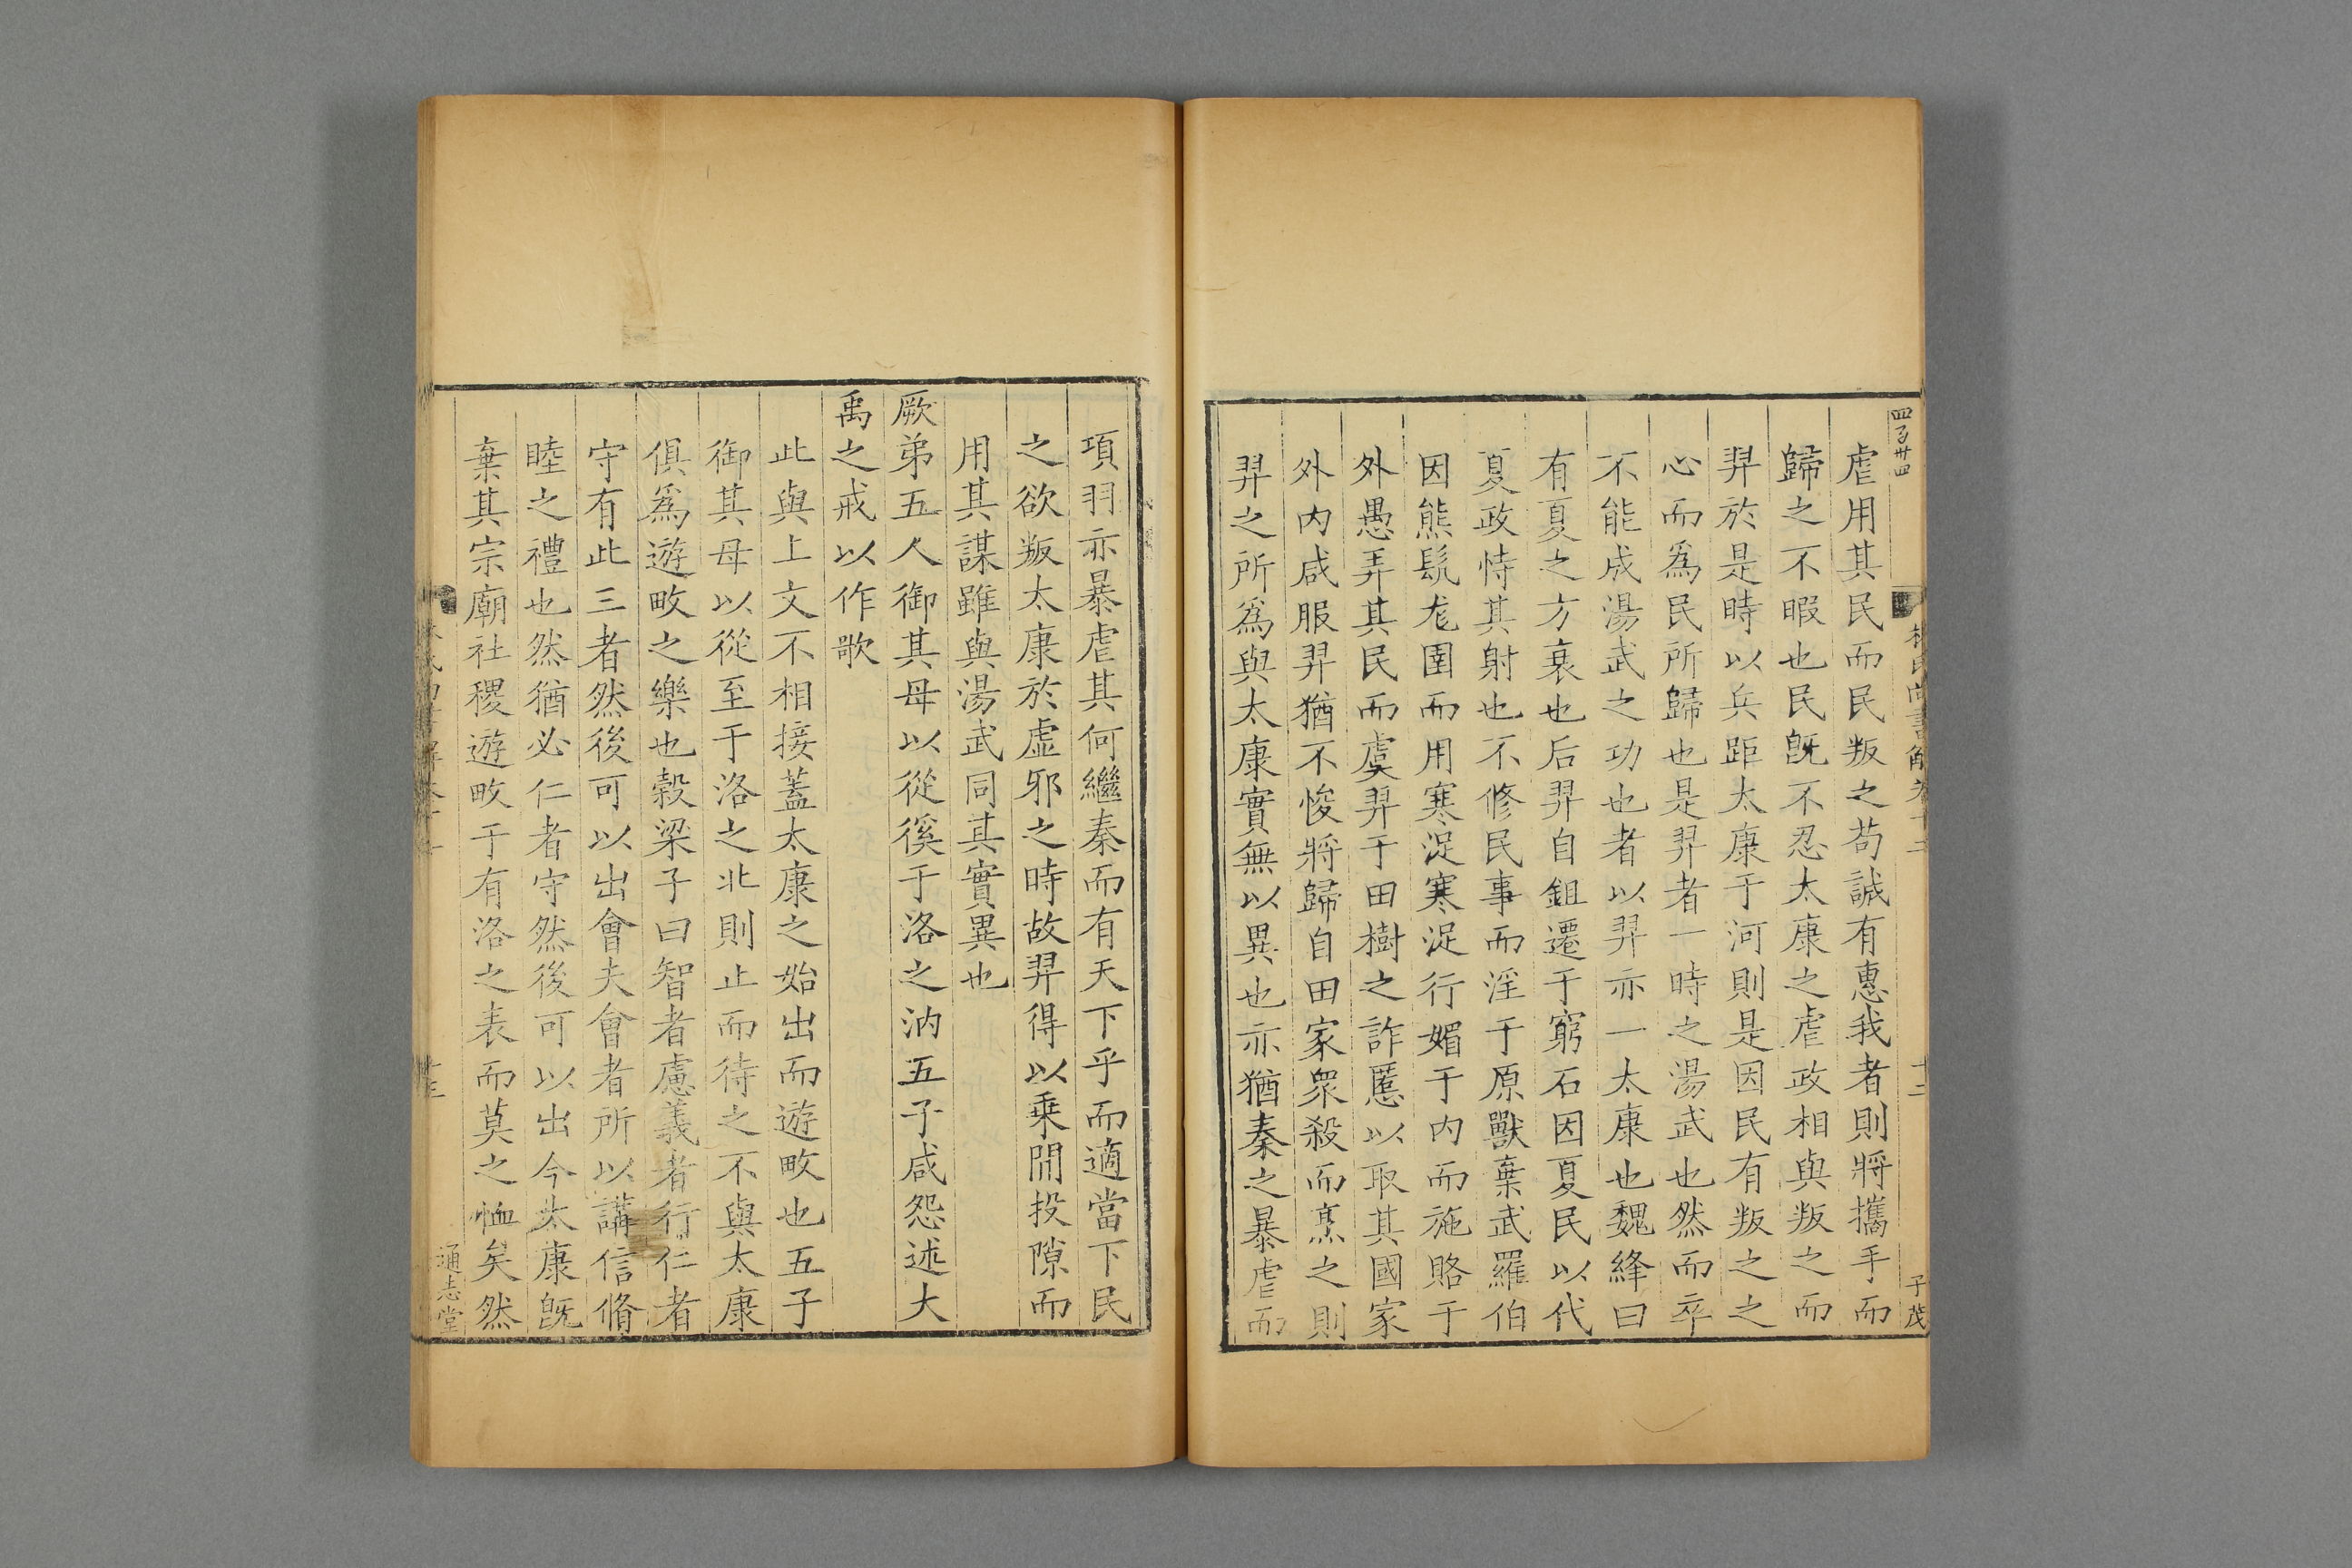 四百廿四
虐用其民而民叛之苟誠有惠我者則將攜手而
歸之不暇也民旣不忍太康之虐政相與叛之而
羿於是時以兵距太康于河則是因民有叛之之
心而爲民所歸也是羿者一時之湯武也然而卒
不能成湯武之功也者以羿亦一太康也魏絳曰
有夏之方衰也后羿自鉏遷于窮石因夏民以代
夏政恃其射也不修民事而淫于原獸棄武羅伯
因熊髡尨圉而用寒浞寒浞行媚于内而施賂于
外愚弄其民而虞羿于田樹之詐慝以取其國家
外内咸服羿猶不悛將歸自田家衆殺而烹之則
羿之所爲與太康實無以異也亦猶秦之暴虐而
林氏尚書解卷十二
十二
子茂
項羽亦暴虐其何繼秦而有天下乎而適當下民
之欲叛太康於虛邪之時故羿得以乗閒投隙而
用其謀雖與湯武同其實異也
厥弟五人御其母以從徯于洛之汭五子咸怨述大
禹之戒以作歌
此與上文不相接蓋太康之始出而遊畋也五子
御其母以從至于洛之北則止而待之不與太康
俱爲遊畋之樂也榖梁子曰智者慮義者行仁者
守有此三者然後可以出會夫會者所以講信脩
睦之禮也然猶必仁者守然後可以出今太康旣
棄其宗廟社稷遊畋于有洛之表而莫之恤矣然
十三
通志堂